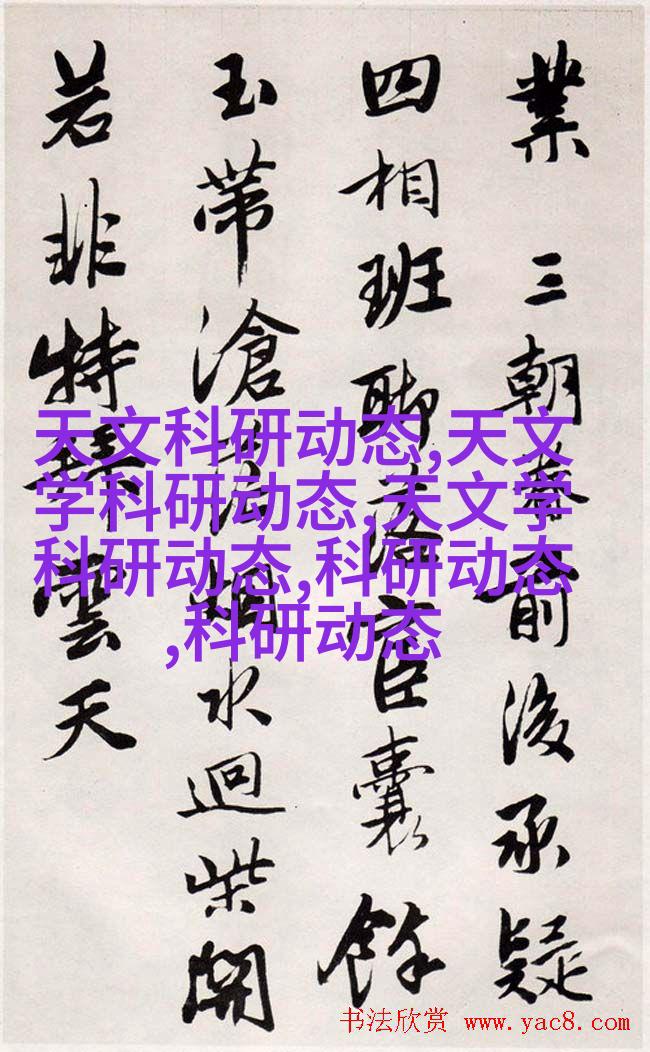 業 三朝前後承疑
四相班聯囊餘
玉帶滄烟水迴柴開
若非特雲天
天文科研动态,天文
学科研动态,天文学
科研动态,科研动态
,科研动态
书法欣赏 www.yac8.com